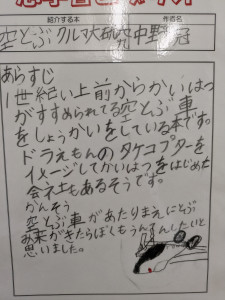 紹介する本
作者名
空とぶクルマ大研究
中野冠
あらすじ
1世紀い上前からかいはつ
がすすめられてる空とぶ車
をしょうかいをしている本です。
ドラえもんのタケコプターを
イメージしてかいはつをはじめた
会社もあるそうです。
かんそう
空とぶ車があたりまえにとぶ
み来がきたらぼくもうんてんしたいと
思いました。